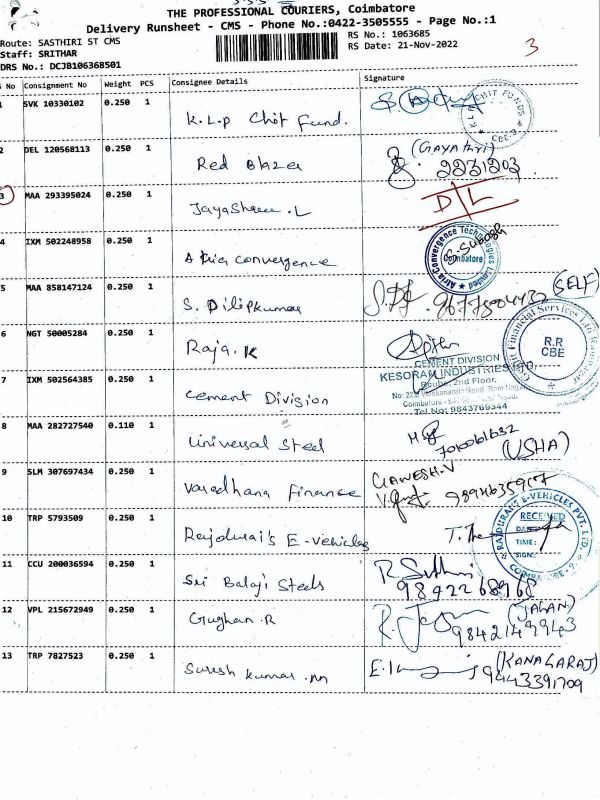 THE PROFESSIONAL COURIERS, Coimbatore
Delivery Runsheet - CMS - Phone No.:0422-3505555 - Page No.:1
Route: SASTHIRI ST CMS
RS No.: 1063685
Staff: SRITHAR
RS Date: 21-Nov-2022
3
DRS No.: DCJB106368501
No Consignment No Weight PCS Consignee Details Signature
1 SVK 10330102 0.250 1 K.L.P Chit Fund. CHIT FUNDS CBE-9
2 DEL 120568113 0.250 1 Red Blazer (GAYATHRI) 2231203
3 MAA 293395024 0.250 1 Jayashree.L D/L
4 IXM 502248958 0.250 1 Atria convergence Atria Convergence Technologies Limited Coimbatore S. Subash
5 MAA 858147124 0.250 1 S. Dilipkumar (SELF)
6 NGT 50005284 0.250 1 Raja.K Financial Services Ltd R.R CBE
7 IXM 502564385 0.250 1 Cement Division
CEMENT DIVISION
KESORAM INDUSTRIES LTD.
2nd Floor,
Coimbatore
Tel No: 9843769344
8 MAA 282727540 0.110 1 Universal Steel (USHA)
9 SLM 307697434 0.250 1 Varadhana Finance GANESH.V
10 TRP 5793509 0.250 1 Rajdurai's E-Vehicles RAJDURAI'S E-VEHICLES PVT. LTD. RECEIVED
DATE:
TIME:
SIGN:
11 CCU 200036594 0.250 1 Sri Balaji Steels 9842268968
12 VPL 215672949 0.250 1 Gughan.R (JALAN) 9842149943
13 TRP 7827523 0.250 1 Suresh Kumar.M (KANAGARAJ) 9443391709